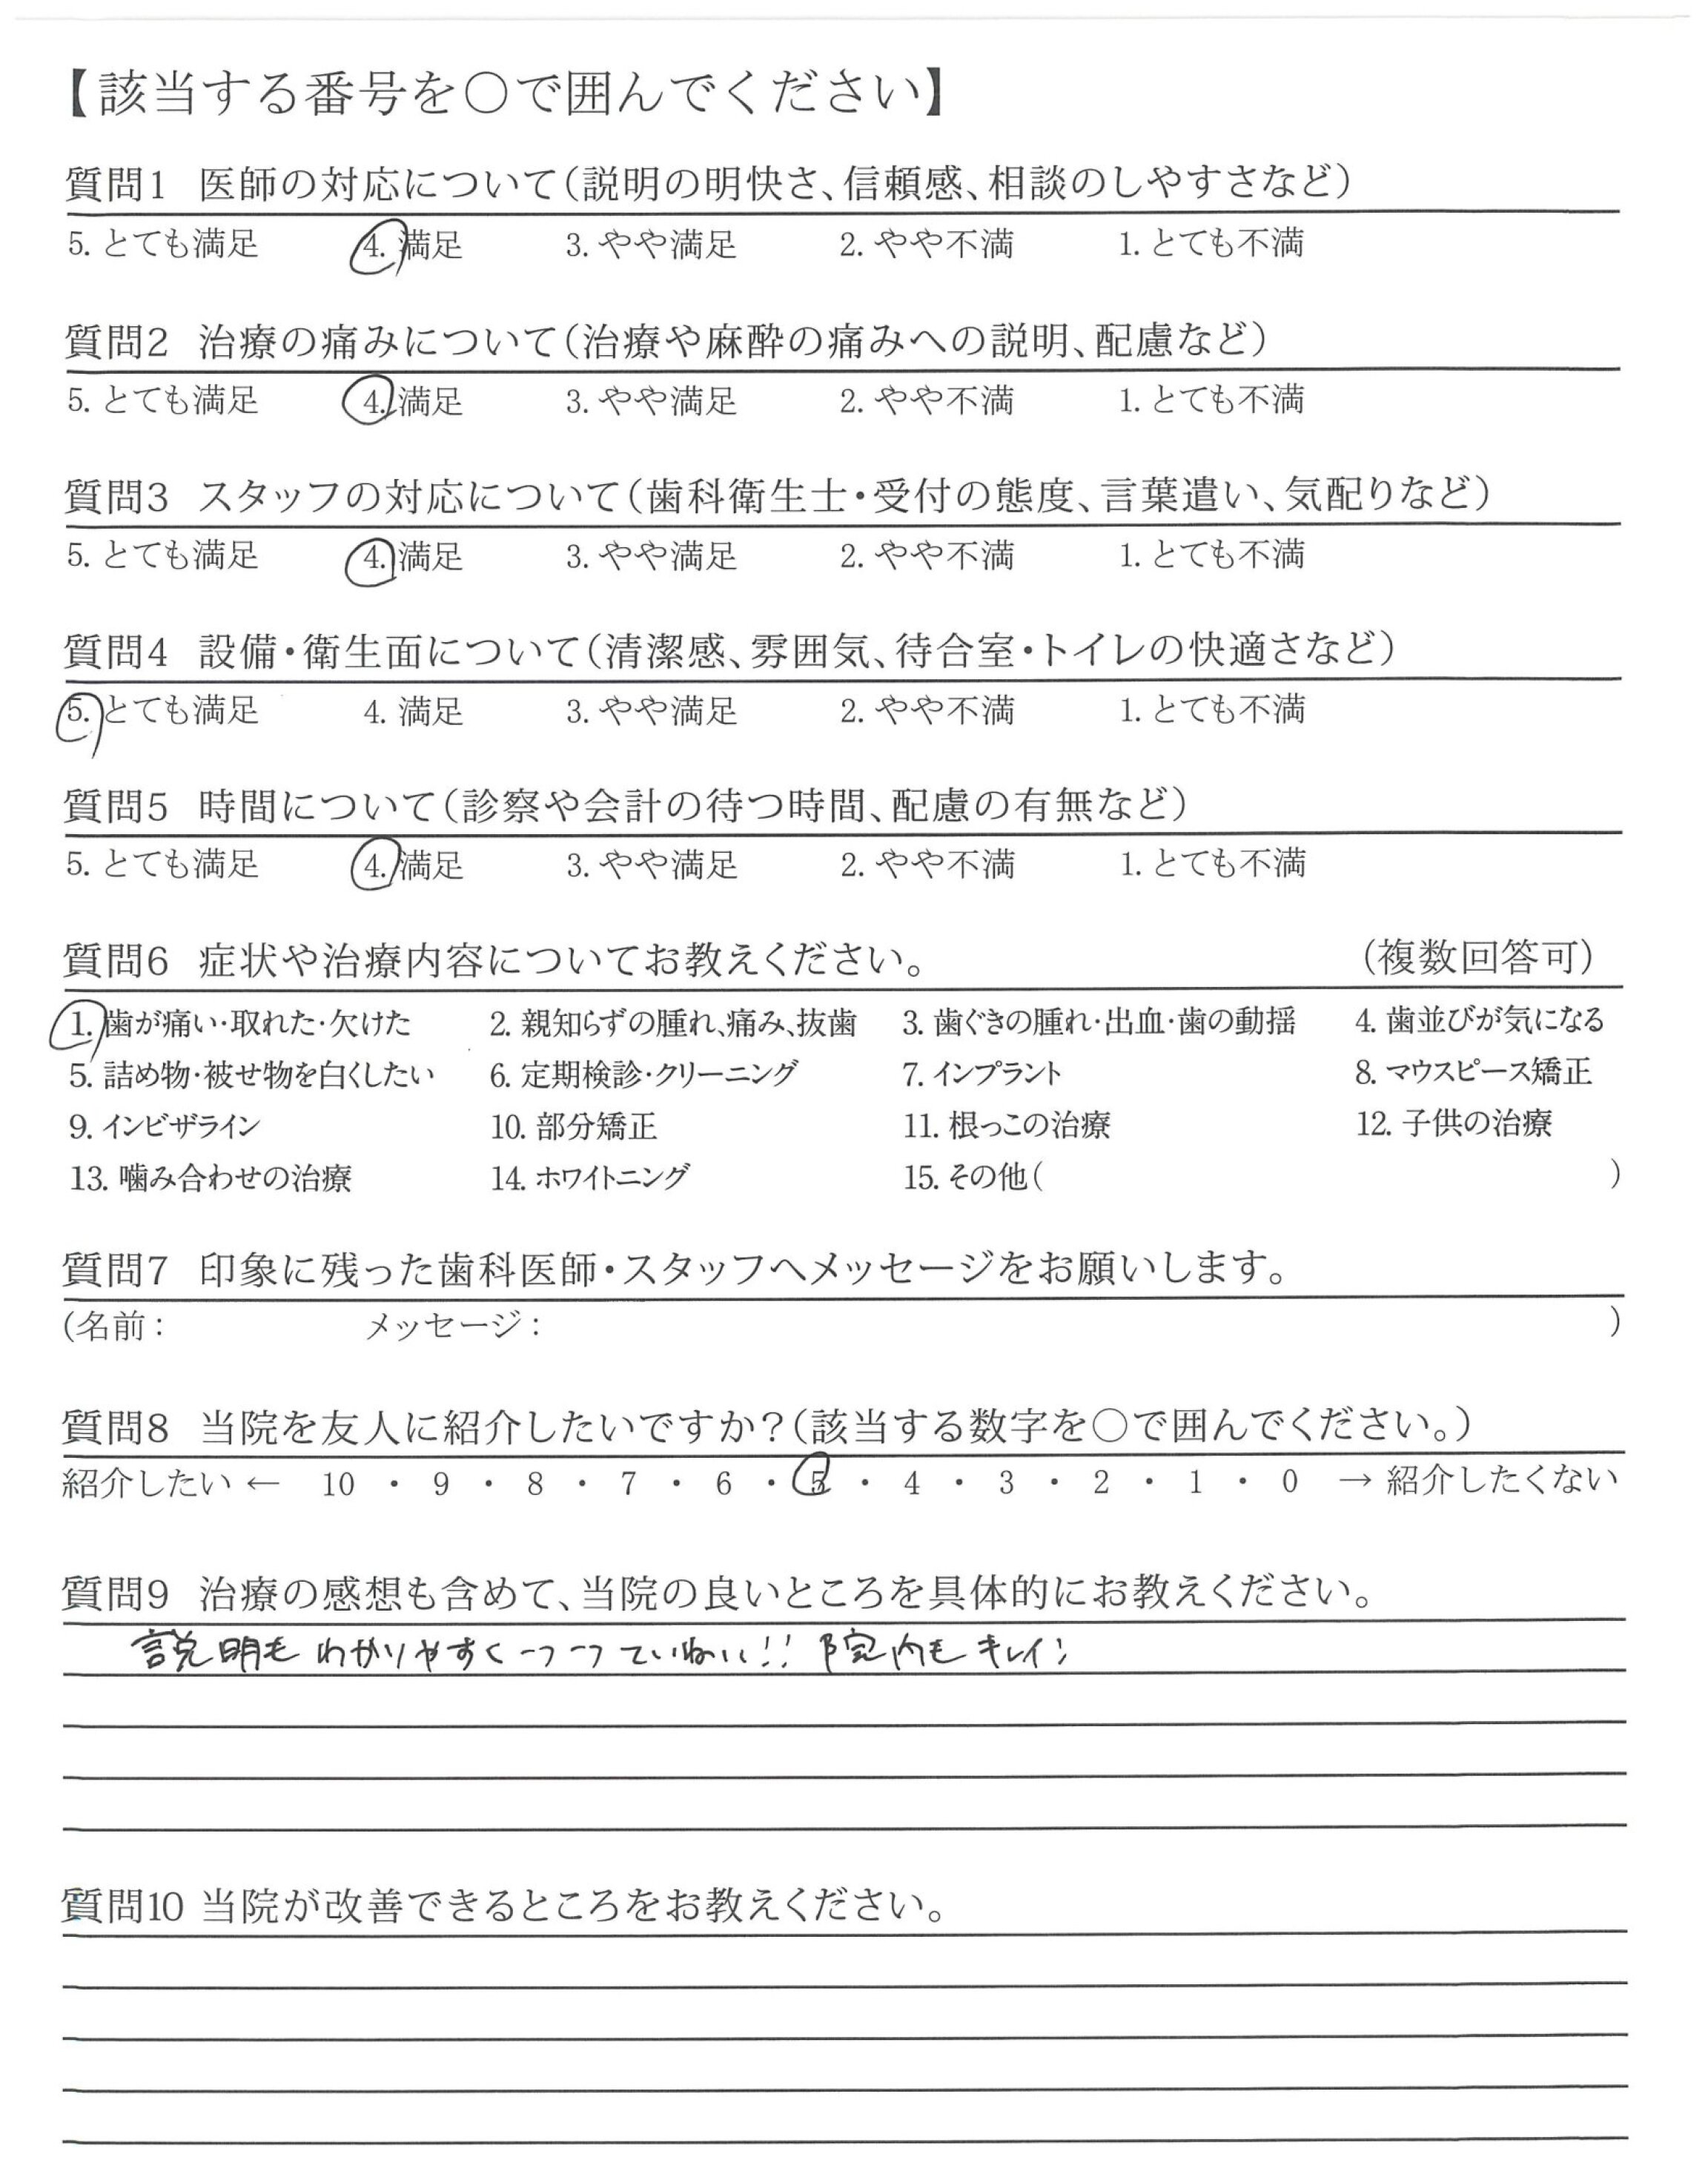 【該当する番号を○で囲んでください】
質問1 医師の対応について(説明の明快さ、信頼感、相談のしやすさなど)
5. とても満足 4. 満足 3. やや満足 2. やや不満 1. とても不満
質問2 治療の痛みについて(治療や麻酔の痛みへの説明、配慮など)
5. とても満足 4. 満足 3. やや満足 2. やや不満 1. とても不満
質問3 スタッフの対応について(歯科衛生士・受付の態度、言葉遣い、気配りなど)
5. とても満足 4. 満足 3. やや満足 2. やや不満 1. とても不満
質問4 設備・衛生面について(清潔感、雰囲気、待合室・トイレの快適さなど)
5. とても満足 4. 満足 3. やや満足 2. やや不満 1. とても不満
質問5 時間について(診察や会計の待つ時間、配慮の有無など)
5. とても満足 4. 満足 3. やや満足 2. やや不満 1. とても不満
質問6 症状や治療内容についてお教えください。 (複数回答可)
1. 歯が痛い・取れた・欠けた 2. 親知らずの腫れ、痛み、抜歯 3. 歯ぐきの腫れ・出血・歯の動揺 4. 歯並びが気になる
5. 詰め物・被せ物を白くしたい 6. 定期検診・クリーニング 7. インプラント 8. マウスピース矯正
9. インビザライン 10. 部分矯正 11. 根っこの治療 12. 子供の治療
13. 噛み合わせの治療 14. ホワイトニング 15. その他( )
質問7 印象に残った歯科医師・スタッフへメッセージをお願いします。
(名前: メッセージ: )
質問8 当院を友人に紹介したいですか?(該当する数字を○で囲んでください。)
紹介したい ← 10 ・ 9 ・ 8 ・ 7 ・ 6 ・ 5 ・ 4 ・ 3 ・ 2 ・ 1 ・ 0 → 紹介したくない
質問9 治療の感想も含めて、当院の良いところを具体的にお教えください。
説明も わかりやすく 一つ一つ ていねい!! 院内も キレイ!
質問10 当院が改善できるところをお教えください。